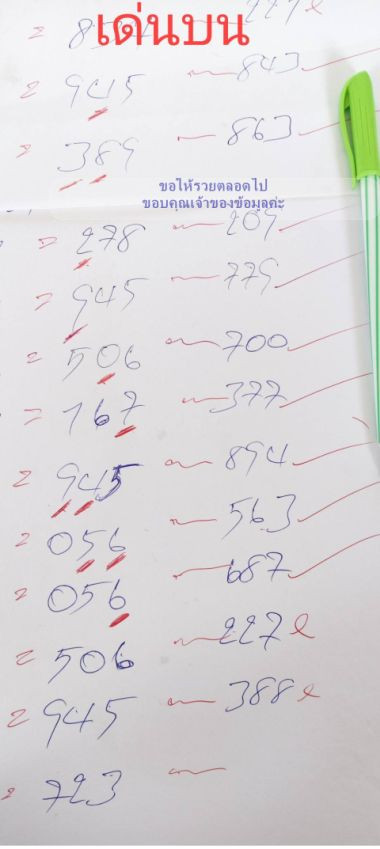 เด่นบน
= 945 — 843
= 389 — 863
ขอให้รวยตลอดไป
ขอบคุณเจ้าของข้อมูลค่ะ
= 278 — 209
= 945 — 779
= 506 — 700
= 167 — 377
= 945 — 894
= 056 — 563
= 056 — 687
= 506 — 227 l
= 945 — 388 l
= 723 —